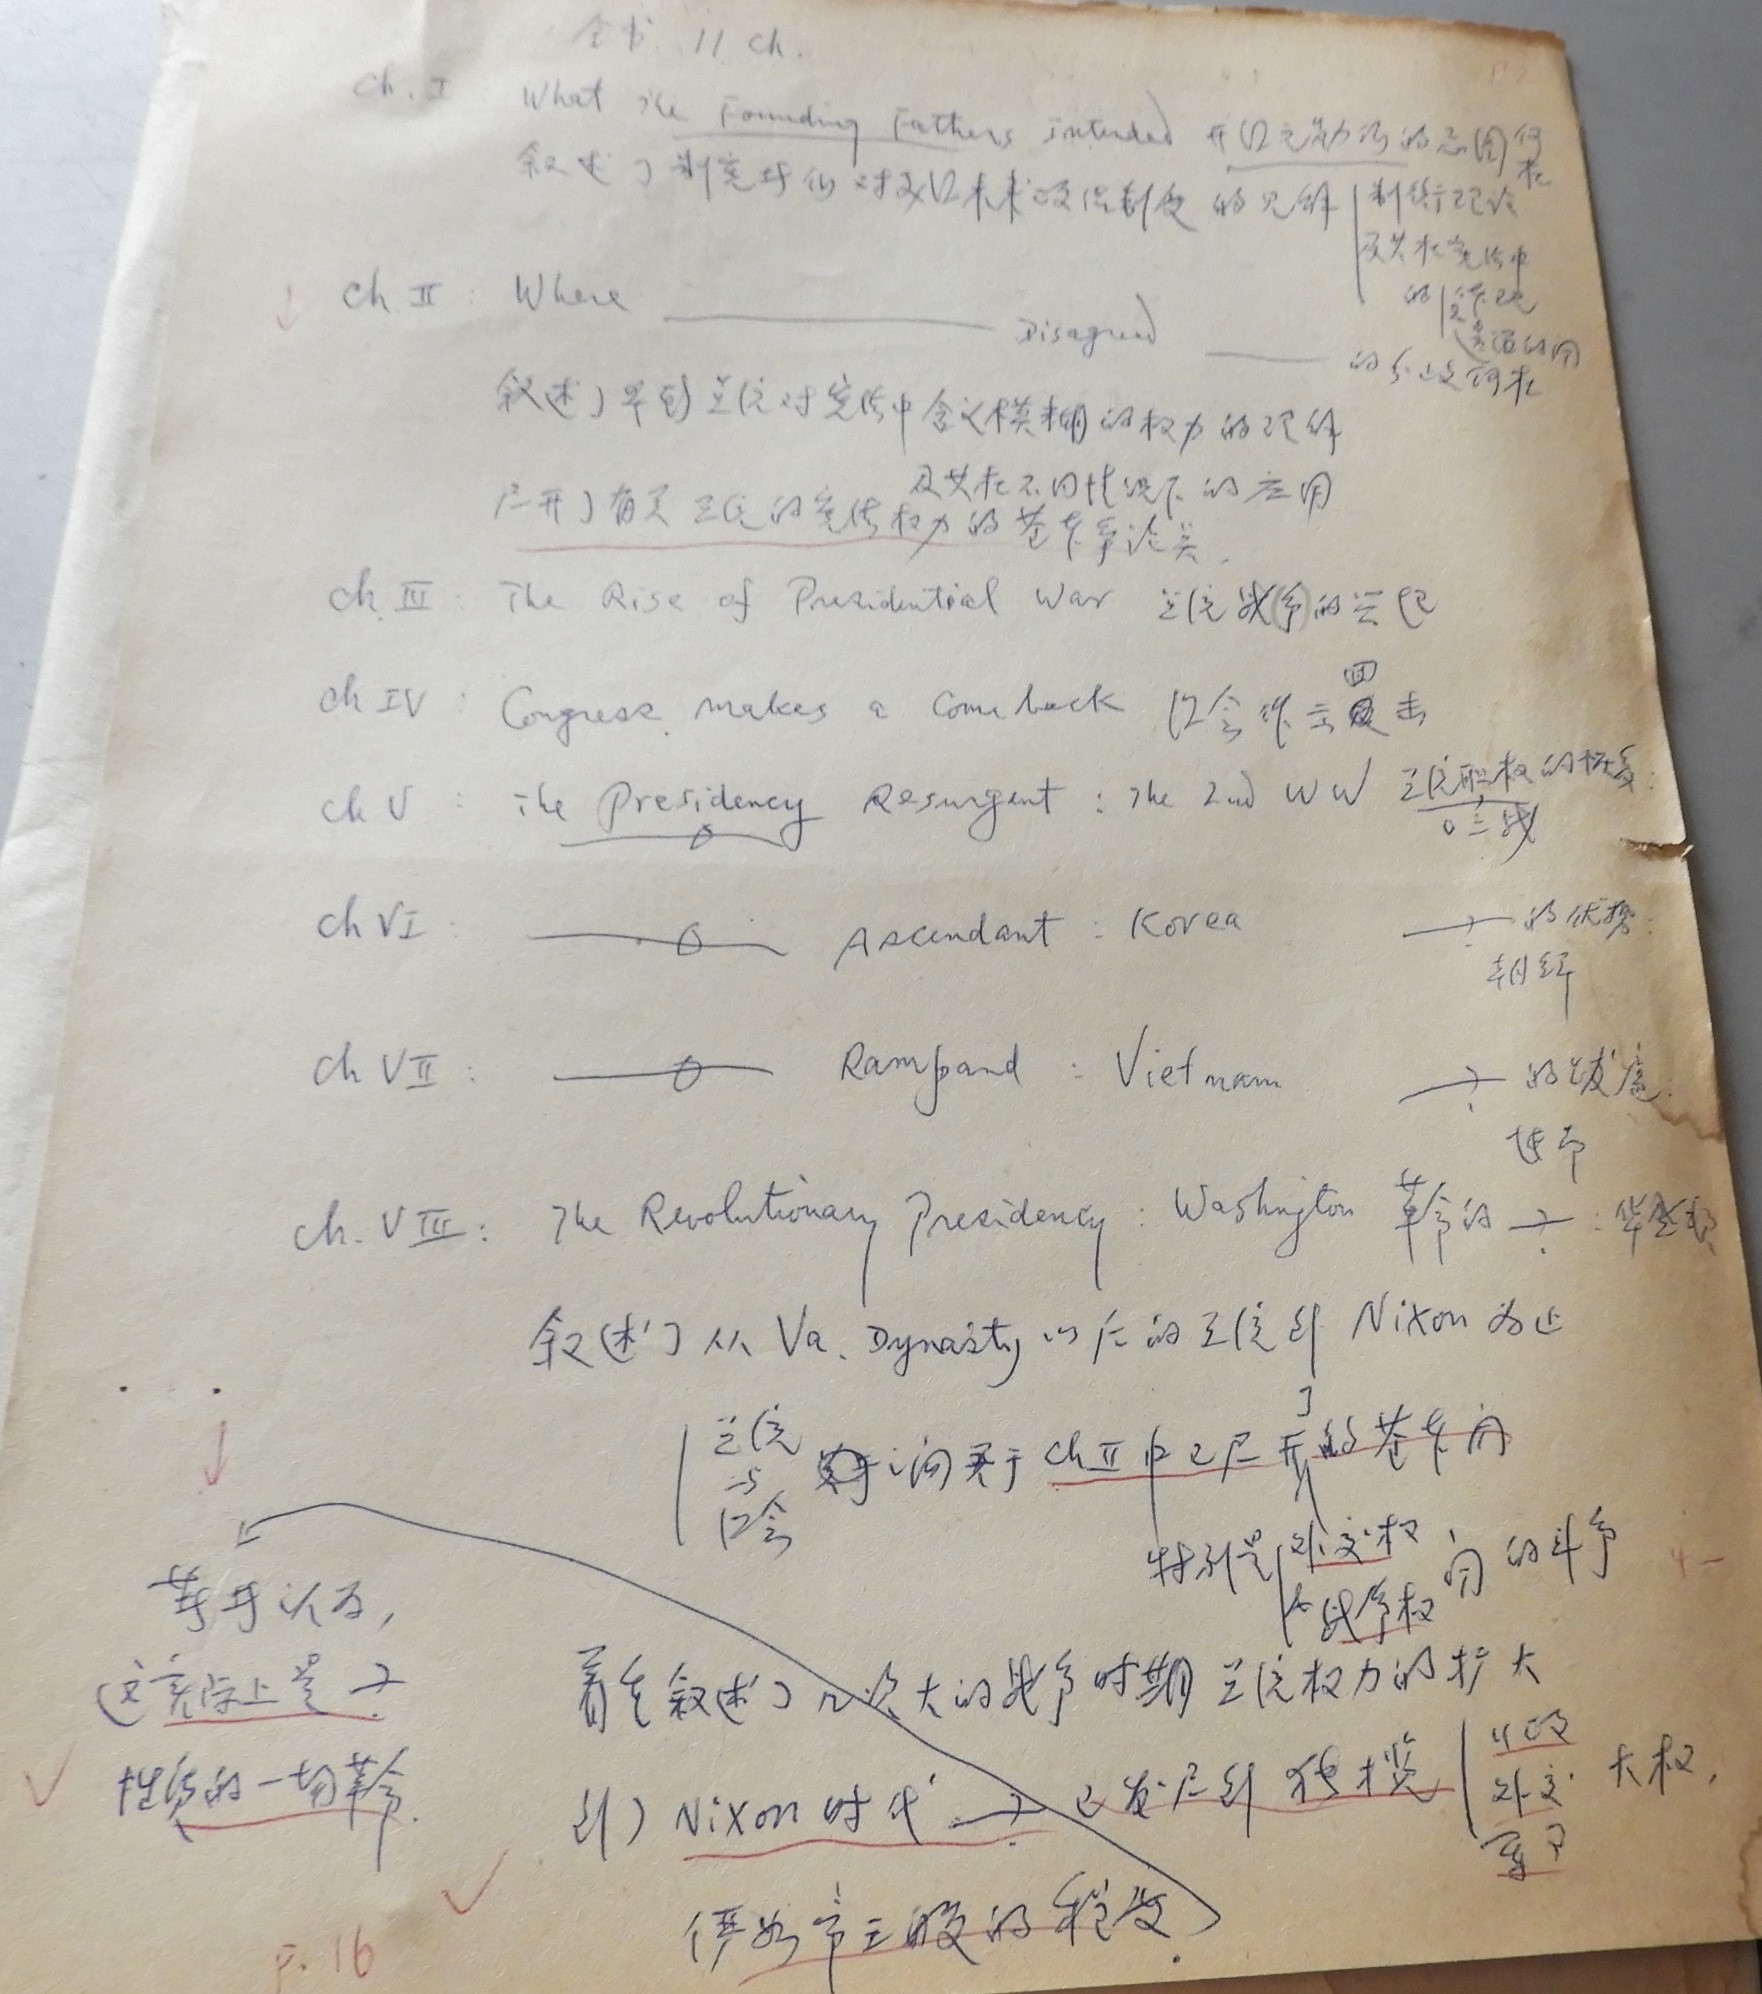 全书 11 ch.
Ch. I What the Founding Fathers intended 开国元勋们的意图何在
叙述了制宪者们对美国未来政治制度的见解 制衡理论
及其在宪法中
的 体现
运用
ch II : Where Disagreed 的分歧何在
叙述了早期总统对宪法中含义模糊的权力的理解
及其在不同情况下的应用
展开了有关总统的宪法权力的基本争论
ch III : The Rise of Presidential War 总统战争的兴起
ch IV : Congress makes a Comeback 国会作出回击
ch V : The Presidency Resurgent : The 2nd WW 总统职权的恢复:
二战
ch VI : Ascendant : Korea 的优势:
朝鲜
ch VII : Rampand : Vietnam 的跋扈:
越南
ch. VIII : The Revolutionary Presidency : Washington 革命的 : 华盛顿
叙述了从 Va. Dynasty 以后的总统到 Nixon 为止
总统
与
国会
间关于 ch II 中已展开了的基本
特别是 外交权 的斗争
战争权
着重叙述了几次大的战争时期总统权力的扩大
到了 Nixon 时代 已发展到独揽 内政 大权,
外交
军事
俨如帝王般的程度.
著者认为,
这实际上是
性质的一切革命.
p. 16